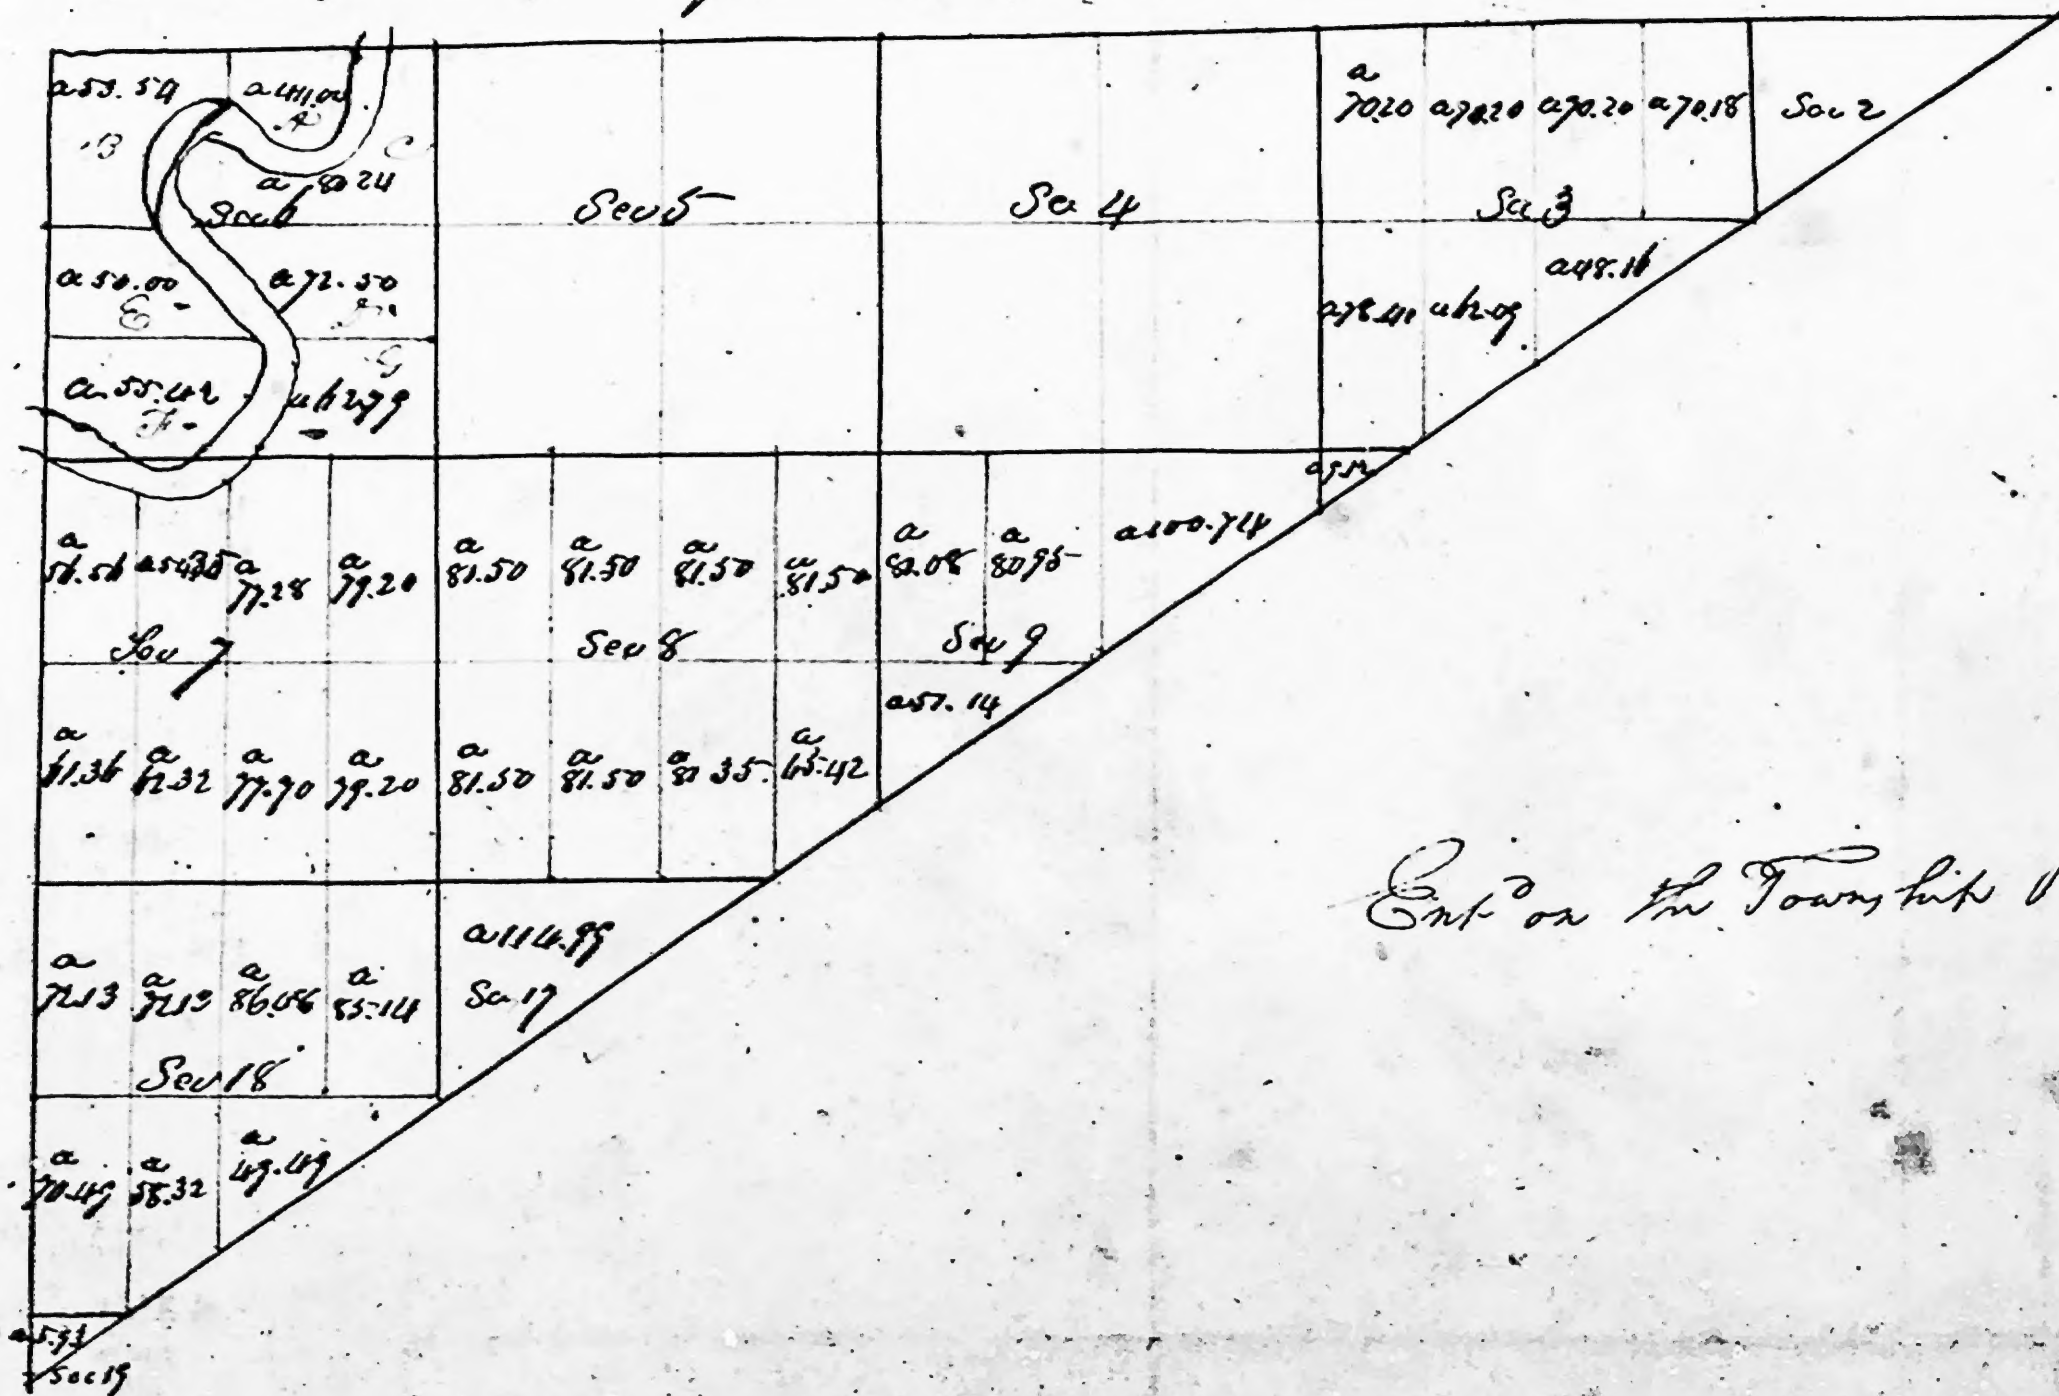 a 53.54
a 411.00
A
B
C
a 80 24
Sec 6
Sec 5
Sec 4
a 70.20 a 70.20 a 70.20 a 70.18
Sec 2
Sec 3
a 50.00
E
a 72.50
a 48.16
a 78.40 a 62.09
G
a 55.42
F
a 62.79
a 56.56
a 77.28
a 79.20
a 81.50
a 81.50
a 81.50
a 81.50
a 80.08
a 80 95
a 100.74
Sec 7
Sec 8
Sec 9
a 57.14
a 61.36
a 62.32
a 77.70
a 79.20
a 81.50
a 81.50
a 81 35
a 65.42
a 114.99
a 72.13
a 72.13
a 86.06
a 85.14
Sec 17
Sec 18
a 70.49
a 58.32
a 49.49
a 5.93
Sec 19
Entd on the Township